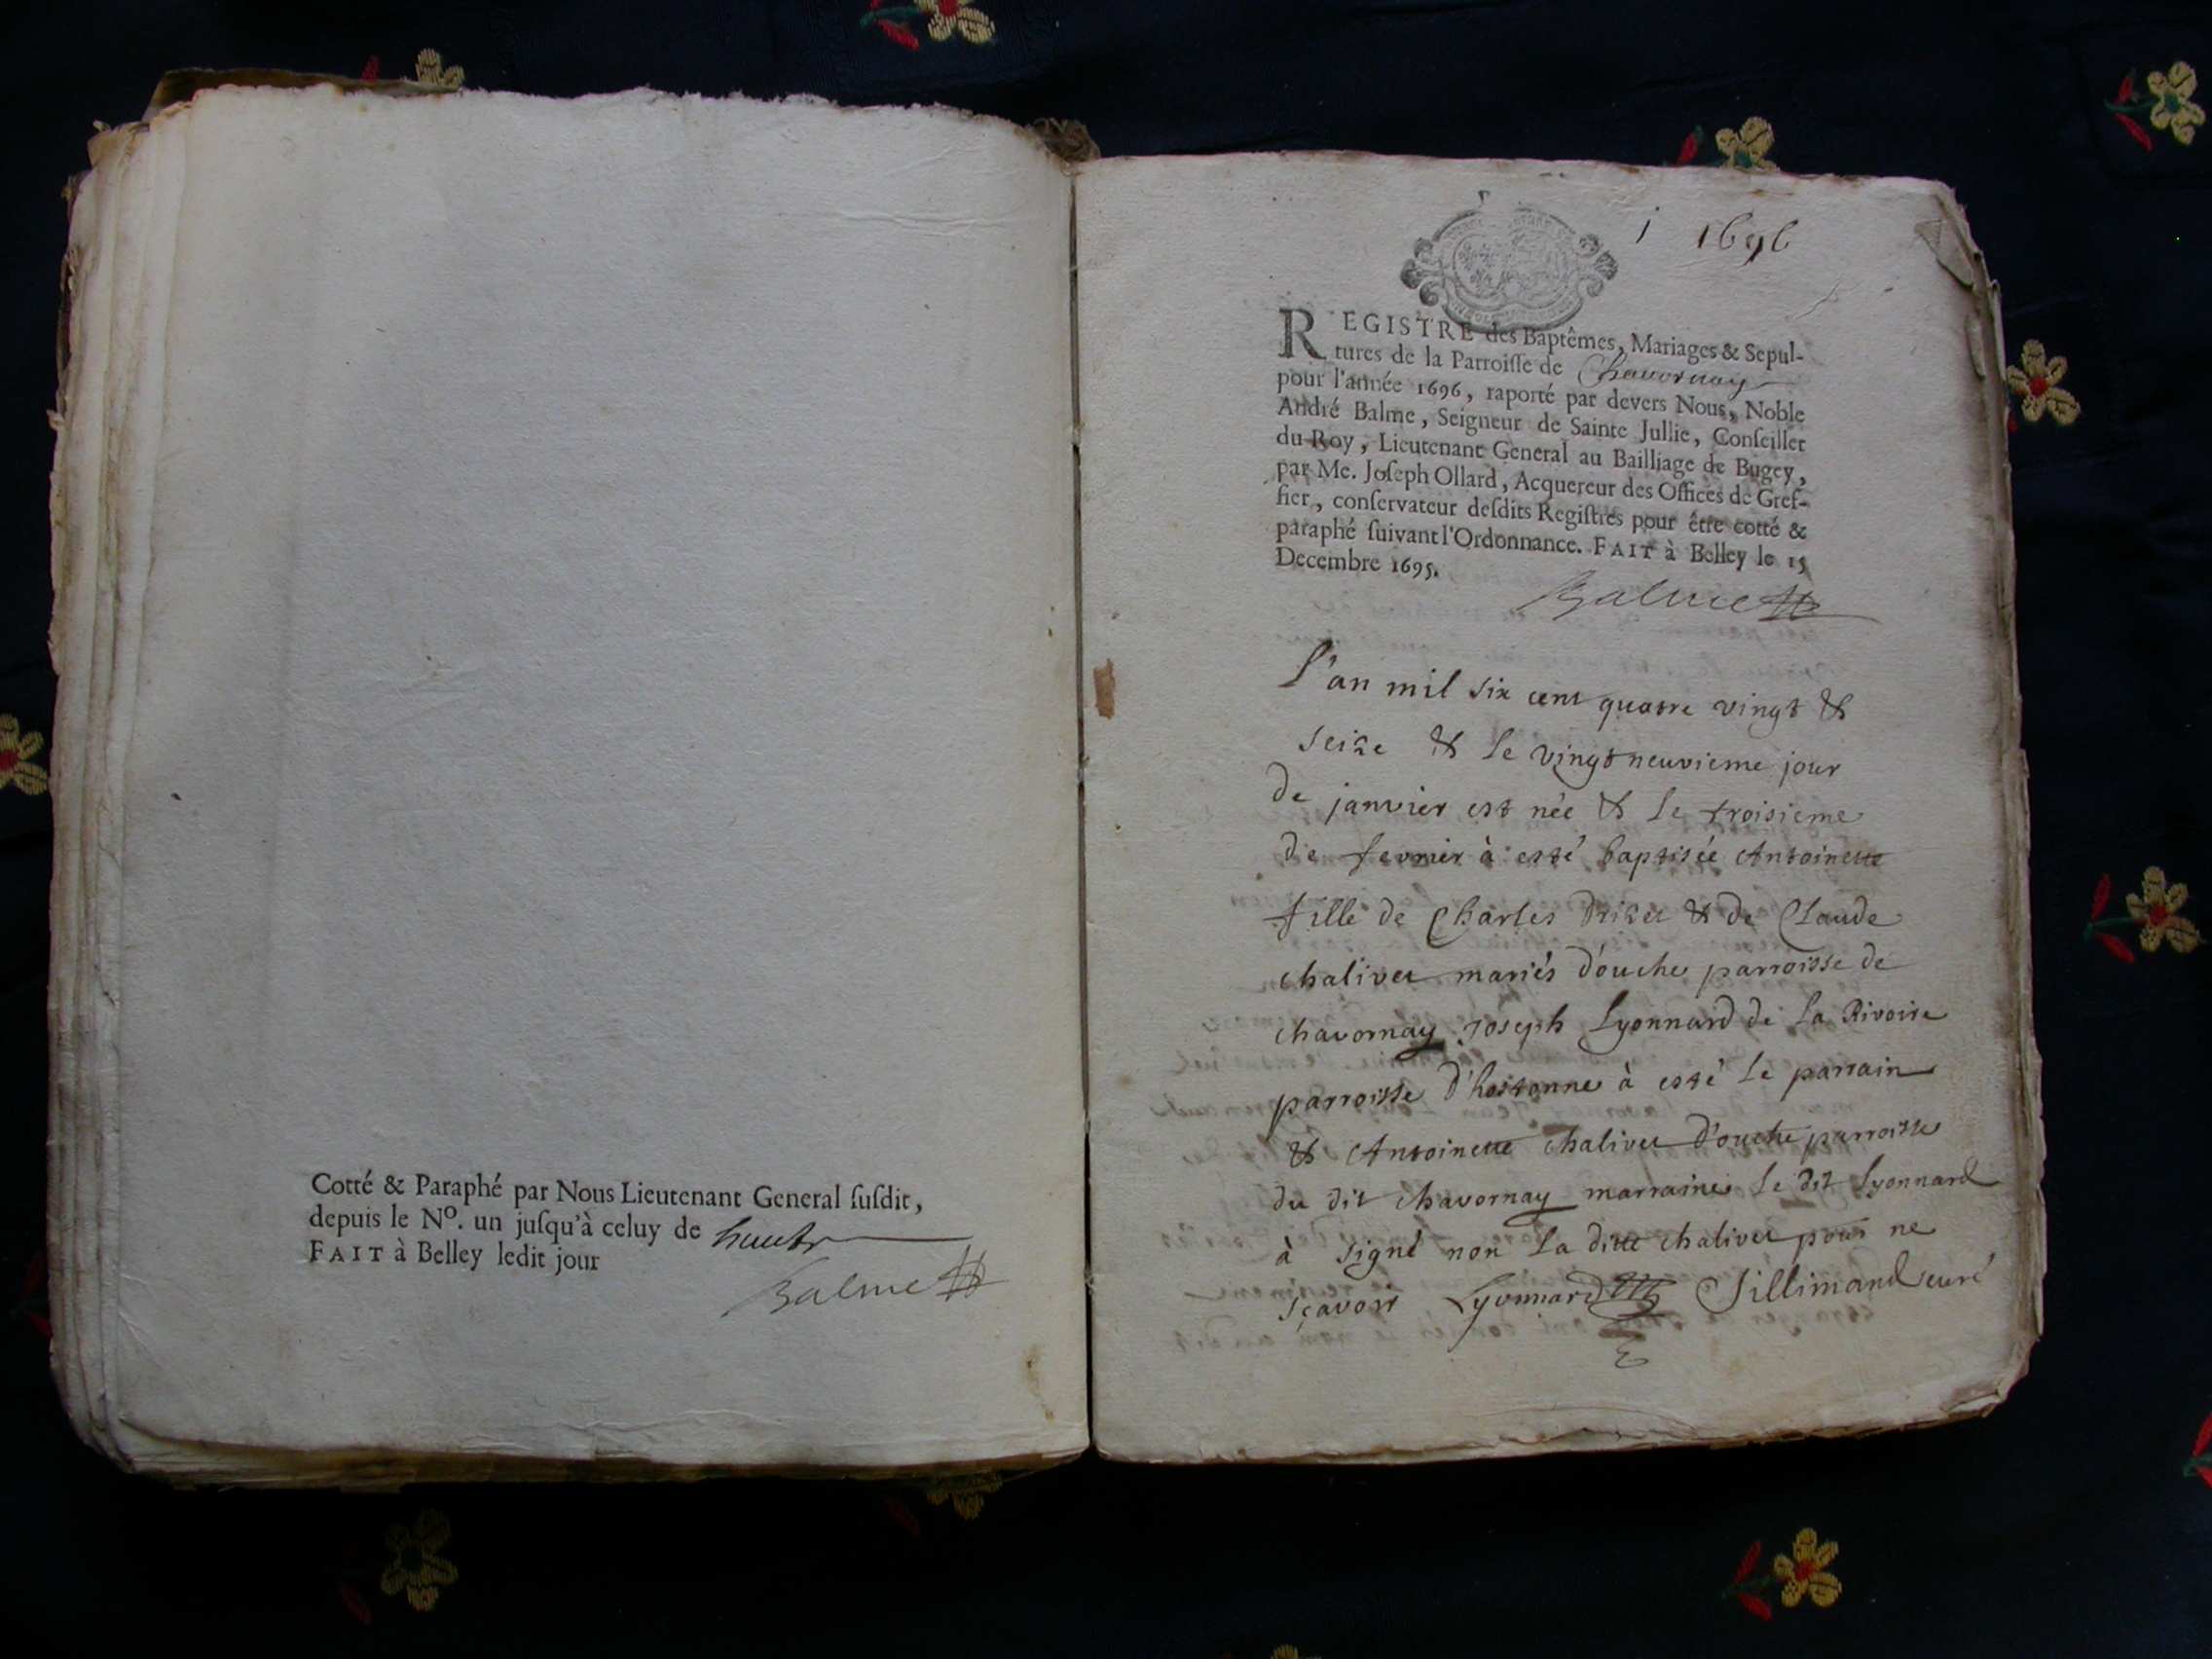 Cotté & Paraphé par Nous Lieutenant General ſuſdit,
depuis le Nº. un juſqu'à celuy de huict
FAIT à Belley ledit jour
Balme
i 1696
REGISTRE des Baptêmes, Mariages & Sepul-
tures de la Parroiſſe de Chavornay
pour l'année 1696, raporté par devers Nous, Noble
André Balme, Seigneur de Sainte Jullie, Conſeiller
du Roy, Lieutenant General au Bailliage de Bugey,
par Me. Joſeph Ollard, Acquereur des Offices de Gref-
fier, conſervateur deſdits Regiſtres pour être cotté &
paraphé ſuivant l'Ordonnance. FAIT à Belley le 15
Decembre 1695.
Balme
L'an mil six cent quatre vingt &
seize & le vingt neuvieme jour
de janvier est née & le troisieme
de fevrier à esté baptisée Antoinette
fille de Charles & de Claude
chalivet mariés d'ouche parroisse de
chavornay Joseph Lyonnard de la Rivoire
parroisse d'hostonne à esté le parrain
& Antoinette chalivet d'ouche parroisse
du dit chavornay marraine le dit Lyonnard
à signé non la ditte chalivet pour ne
sçavoir Lyonnard Jillimand curé